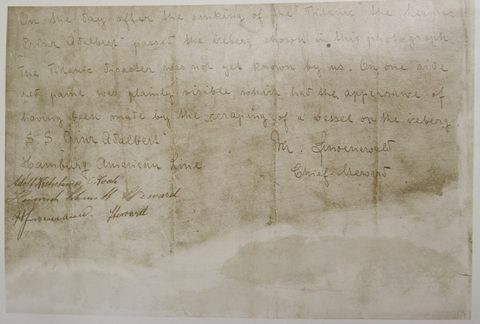 On the day after the sinking of the Titanic, the steamer
Prinz Adalbert passed the iceberg shown in this photograph
The Titanic disaster was not yet known by us. On one side
red paint was plainly visible, which had the appearance of
having been made by the scraping of a vessel on the iceberg
S. S. Prinz Adalbert
Mr.
Hamburg American Line
Chief Steward
Koch
Heinrich Schmidt Steward
Steward